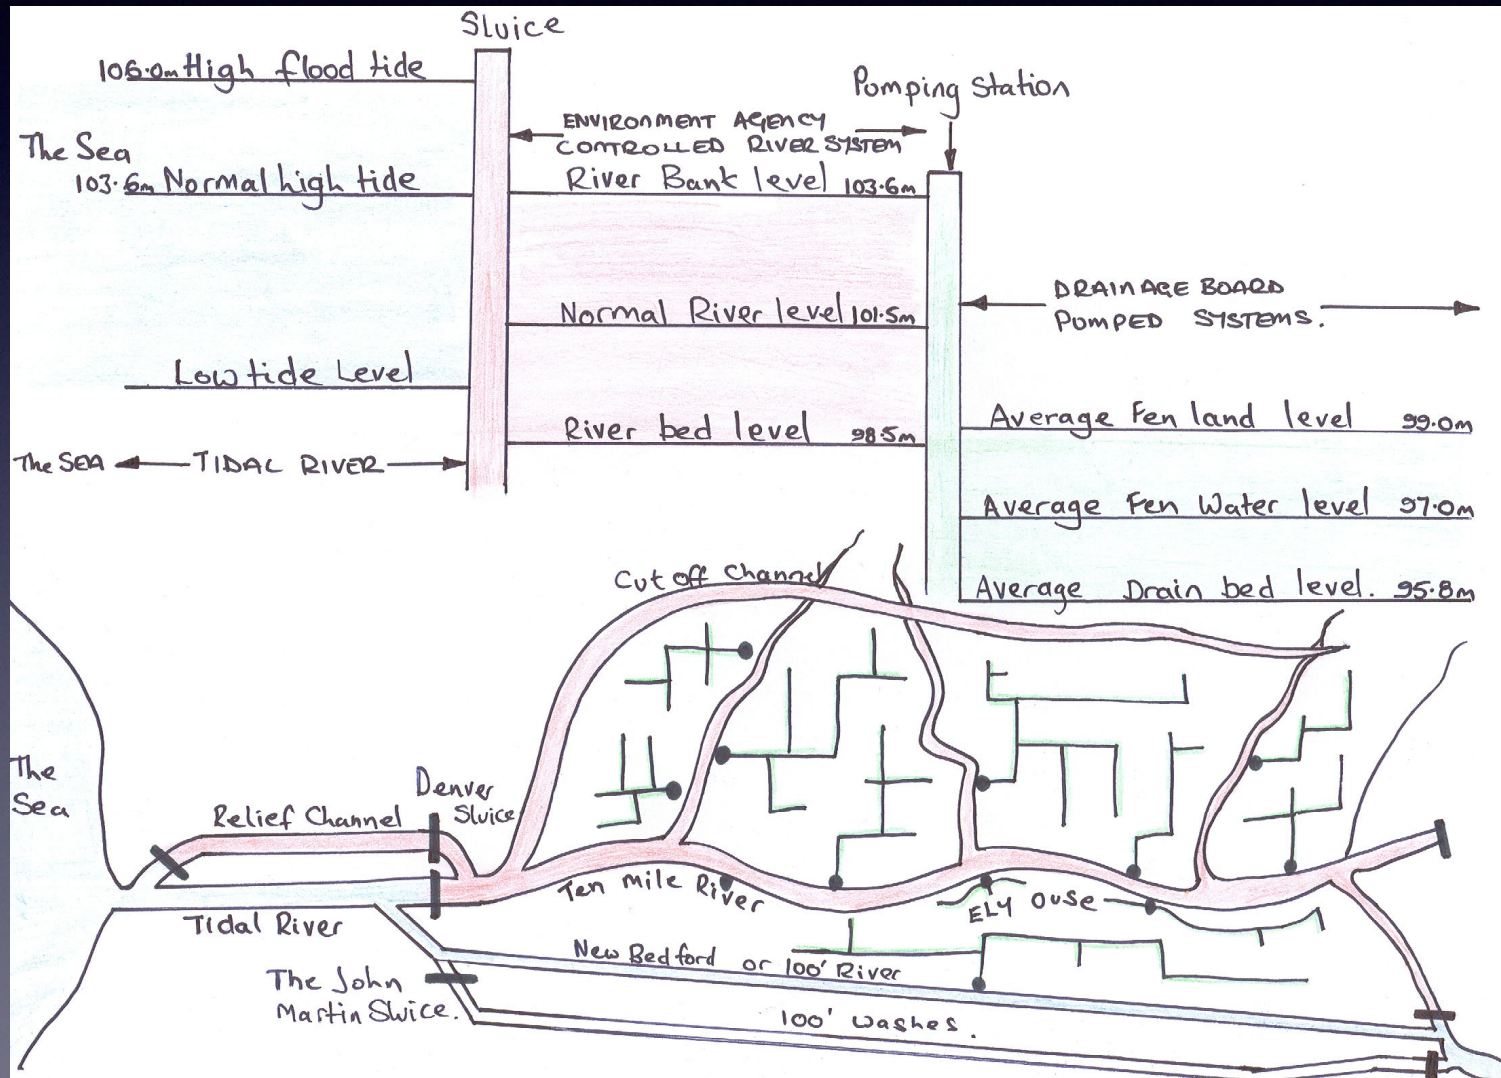 Sluice
106.0m High flood tide
Pumping Station
ENVIRONMENT AGENCY
CONTROLLED RIVER SYSTEM
The Sea
103.6m Normal high tide
River Bank level 103.6m
DRAINAGE BOARD
PUMPED SYSTEMS.
Normal River level 101.5m
Low tide Level
Average Fen land level 99.0m
River bed level 98.5m
The SEA TIDAL RIVER
Average Fen Water level 97.0m
Cut off Channel
Average Drain bed level. 95.8m
The
Sea
Denver
Sluice
Relief Channel
Ten Mile River
ELY OUSE
Tidal River
New Bedford or 100' River
The John
Martin Sluice.
100' washes.